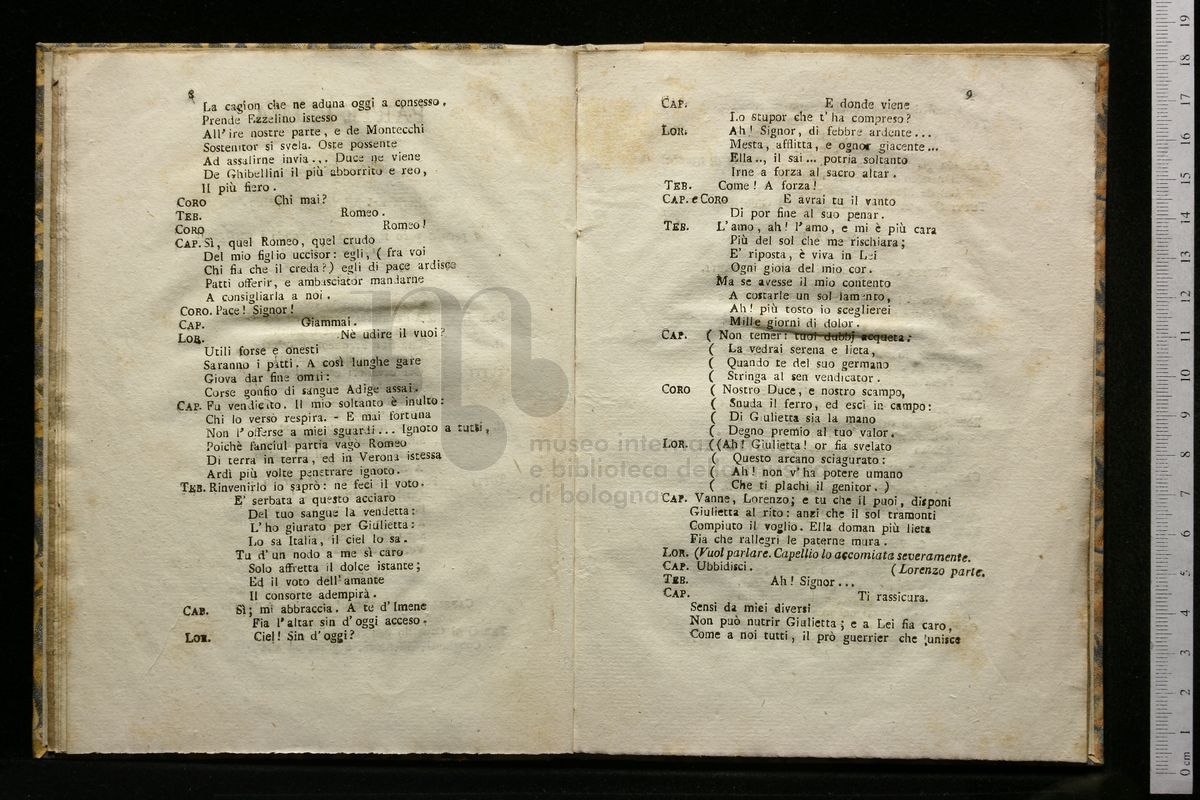 8
La cagion che ne aduna oggi a consesso.
Prende Ezzelino istesso
All' ire nostre parte, e de Montecchi
Sostenitor si svela. Oste possente
Ad assalirne invia... Duce ne viene
De Ghibellini il più abborrito e reo,
Il più fiero.
CORO Chi mai?
TEB. Romeo.
CORO Romeo!
CAP. Sì, quel Romeo, quel crudo
Del mio figlio uccisor: egli, ( fra voi
Chi fia che il creda?) egli di pace ardisce
Patti offerir, e ambasciator mandarne
A consigliarla a noi.
CORO. Pace! Signor!
CAP. Giammai.
LOR. Nè udire il vuoi?
Utili forse e onesti
Saranno i patti. A così lunghe gare
Giova dar fine omai:
Corse gonfio di sangue Adige assai.
CAP. Fu vendicato. Il mio soltanto è inulto:
Chi lo versò respira. - E mai fortuna
Non l'offerse a miei sguardi... Ignoto a tutti,
Poichè fanciul partia vagò Romeo
Di terra in terra, ed in Verona istessa
Ardì più volte penetrare ignoto.
TEB. Rinvenirlo io saprò: ne feci il voto.
E' serbata a questo acciaro
Del tuo sangue la vendetta:
L'ho giurato per Giulietta:
Lo sa Italia, il ciel lo sa.
Tu d'un nodo a me sì caro
Solo affretta il dolce istante;
Ed il voto dell'amante
Il consorte adempirà.
CAP. Sì; mi abbraccia. A te d'Imene
Fia l'altar sin d'oggi acceso.
LOR. Ciel! Sin d'oggi?
9
CAP. E donde viene
Lo stupor che t'ha compreso?
LOR. Ah! Signor, di febbre ardente...
Mesta, afflitta, e ognor giacente...
Ella.., il sai... potria soltanto
Irne a forza al sacro altar.
TEB. Come! A forza!
CAP. e CORO E avrai tu il vanto
Di por fine al suo penar.
TEB. L'amo, ah! l'amo, e mi è più cara
Più del sol che me rischiara;
E' riposta, è viva in Lei
Ogni gioia del mio cor.
Ma se avesse il mio contento
A costarle un sol lamento,
Ah! più tosto io sceglierei
Mille giorni di dolor.
CAP. ( Non temer: tuoi dubbj acqueta:
( La vedrai serena e lieta,
( Quando te del suo germano
( Stringa al sen vendicator.
CORO ( Nostro Duce, e nostro scampo,
( Snuda il ferro, ed esci in campo:
( Di Giulietta sia la mano
( Degno premio al tuo valor.
LOR. ((Ah! Giulietta! or fia svelato
( Questo arcano sciagurato:
( Ah! non v'ha potere umano
( Che ti plachi il genitor. )
CAP. Vanne, Lorenzo; e tu che il puoi, disponi
Giulietta al rito: anzi che il sol tramonti
Compiuto il voglio. Ella doman più lieta
Fia che rallegri le paterne mura.
LOR. (Vuol parlare. Capellio lo accomiata severamente.
CAP. Ubbidisci. ( Lorenzo parte.
TEB. Ah! Signor...
CAP. Ti rassicura.
Sensi da miei diversi
Non può nutrir Giulietta; e a Lei fia caro,
Come a noi tutti, il prò guerrier che unisce
museo internaz
e biblioteca della
di bologna
0 cm 1 2 3 4 5 6 7 8 9 10 11 12 13 14 15 16 17 18 19